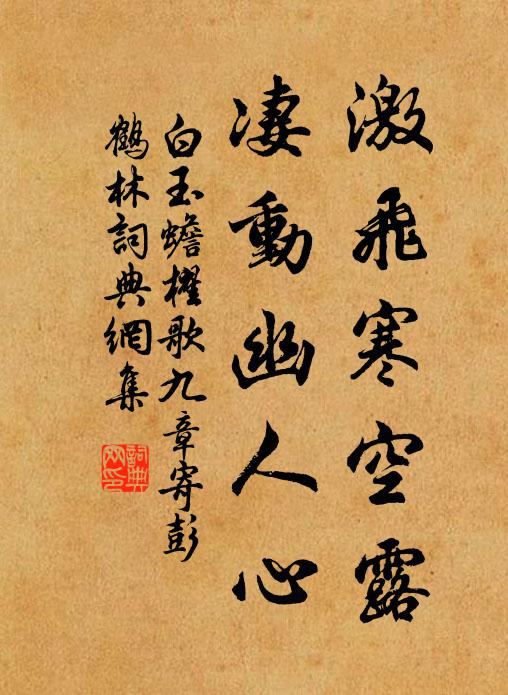 激飛寒空露
凄動幽人心
白玉蟾櫂歌九章寄彭
鶴林詞典網集
詞典
网印